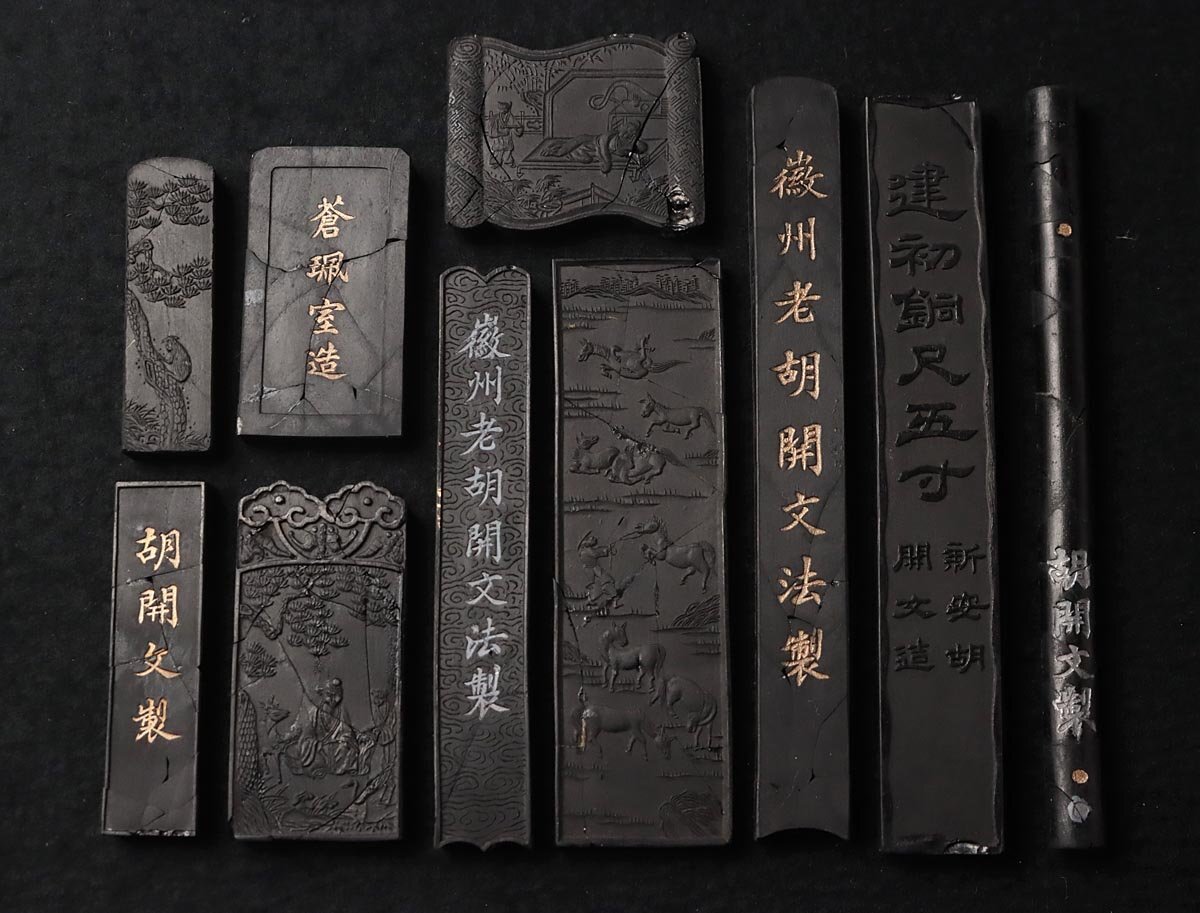 蒼珮室造
胡開文製
徽州老胡開文法製
徽州老胡開文法製
建初銅尺五寸
新安胡
開文造
胡開文製